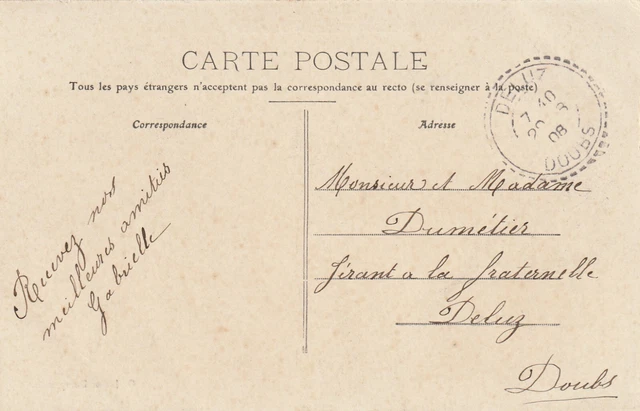 CARTE POSTALE
Tous les pays étrangers n'acceptent pas la correspondance au recto (se renseigner à la poste)
Correspondance
Adresse
DELUZ
7 40
08
DOUBS
Recevez nos
meilleures amitiés
Gabrielle
Monsieur et Madame
Dumétier
Gérant a la fraternelle
Deluz
Doubs